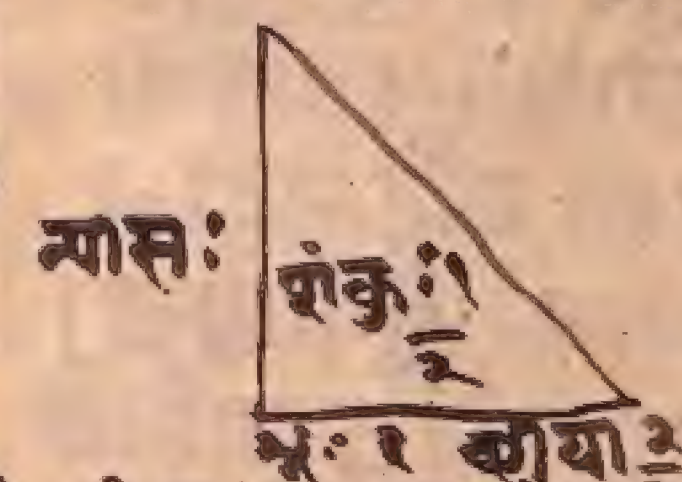 न्यासः
शंकुः १
२
भूः १ छाया २